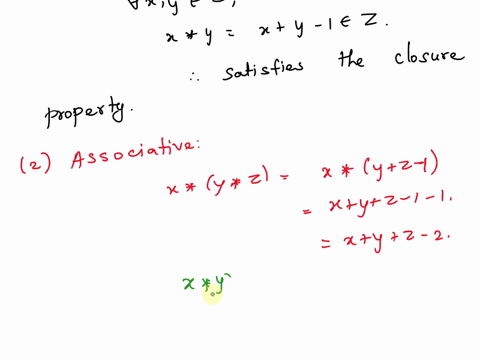 ∀ x, y ∈ Z,
x * y = x + y - 1 ∈ Z.
∴ satisfies the closure
property.
(2) Associative:
x * (y * z) = x * (y+z-1)
= x+y+z-1-1.
= x+y+z-2.
x * y